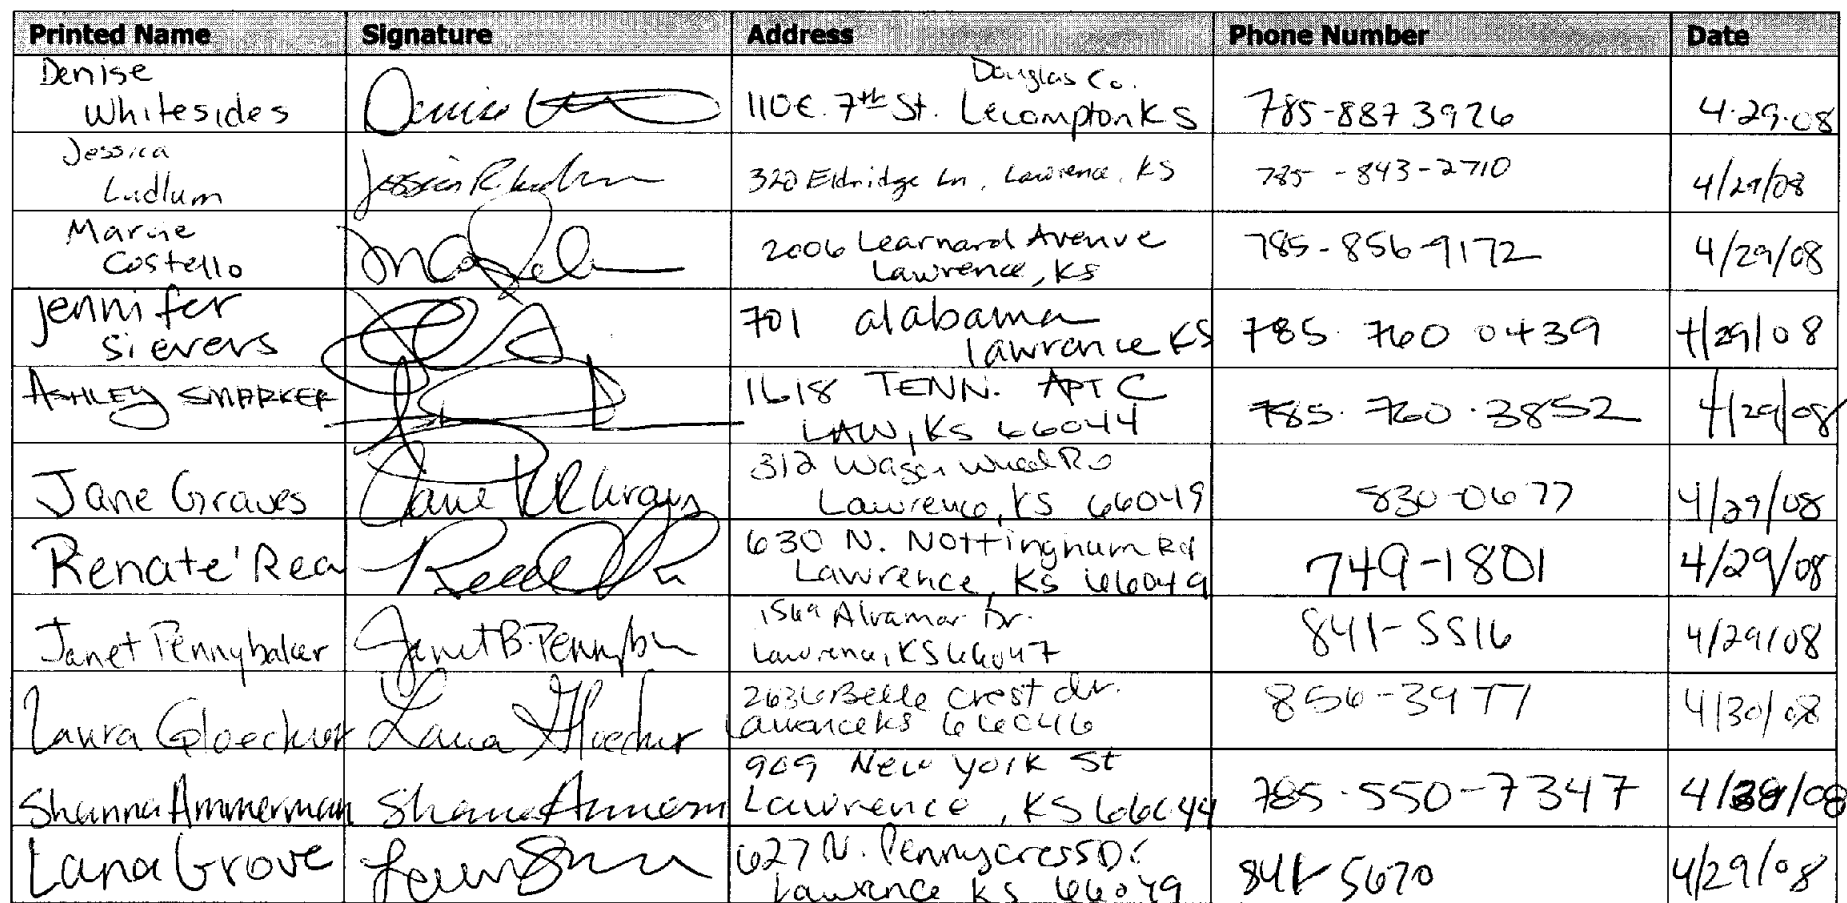 Printed Name Signature Address Phone Number Date
Denise Whitesides Denise 110 E. 7th St. Douglas Co. Lecompton KS 785-887 3926 4.29.08
Jessica Ludlum Jessica R. Ludlum 320 Eldridge Ln, Lawrence, KS 785-843-2710 4/29/08
Marcie Costello 2006 Learnard Avenue
Lawrence, KS 785-856-9172 4/29/08
Jennifer Sievers 701 alabama
lawrence KS 785 760 0439 4/29/08
ASHLEY SMARKER 1618 TENN. APT C
LAW, KS 66044 785.760.3852 4/29/08
Jane Graves Jane Graves 312 Wagon Wheel Rd
Lawrence, KS 66049 830-0677 4/29/08
Renate' Rea 630 N. Nottingham Rd
Lawrence, KS 66049 749-1801 4/29/08
Janet Pennybaker Janet B. Pennybaker 1569 Alvamar Dr.
Lawrence, KS 66047 841-5516 4/29/08
Laura Gloeckner Laura Gloeckner 2636 Belle Crest dr.
Lawrence KS 66046 856-3977 4/30/08
Shanna Ammerman Shanna Ammerman 909 New York St
Lawrence, KS 66044 785-550-7347
Lana Grove 627 N. Pennycress Dr
Lawrence KS 66049 841-5670 4/29/08